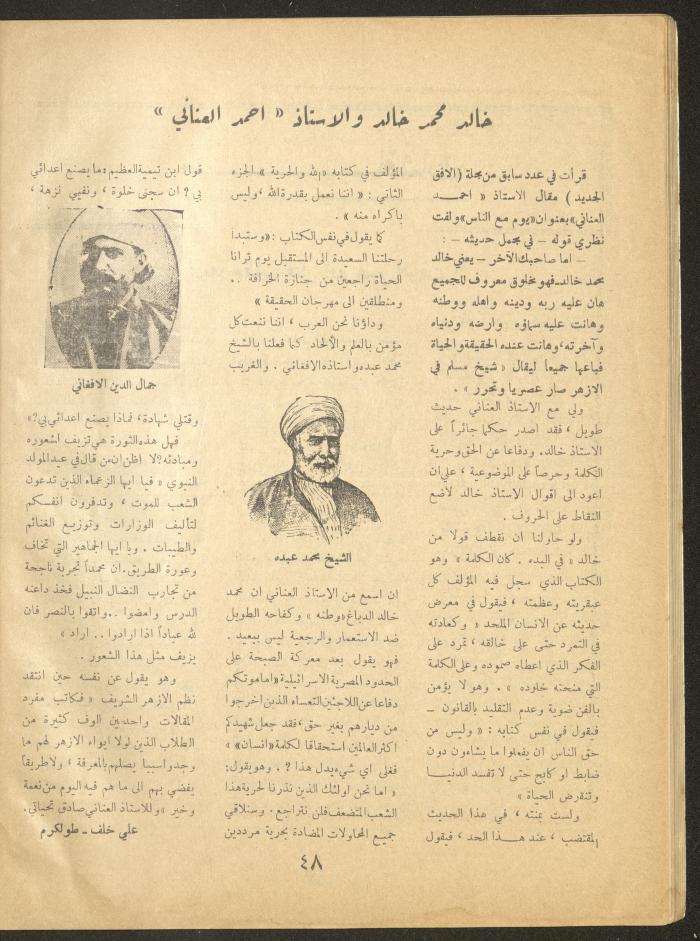 خالد محمد خالد والاستاذ « احمد العناني »
قرأت في عدد سابق من مجلة (الافق
الجديد) مقال الاستاذ « احمد
العناني» بعنوان «يوم مع الناس» ولفت
نظري قوله – في مجمل حديثه – :
– اما صاحبك الآخر – يعني خالد
محمد خالد – فهو مخلوق معروف للجميع
هان عليه ربه ودينه واهله ووطنه
وهانت عليه سماؤه وارضه ودنياه
وآخرته، وهانت عنده الحقيقة والحياة
فباعها جميعا ليقال « شيخ مسلم في
الازهر صار عصريا وتحرر » .
ولي مع الاستاذ العناني حديث
طويل ، فقد اصدر حكما جائراً على
الاستاذ خالد. ودفاعا عن الحق وحرية
الكلمة وحرصاً على الموضوعية ، علي ان
اعود الى اقوال الاستاذ خالد لأضع
النقاط على الحروف .
ولو حاولنا ان نقطف قولا من
خالد « في البدء . كان الكلمة » وهو
الكتاب الذي سجل فيه المؤلف كل
عبقريته وعظمته ، فيقول في معرض
حديثه عن الانسان الملحد « وكعادته
في التمرد حتى على خالقه ، تمرد على
الفكر الذي اعطاه صموده وعلى الكلمة
التي منحته خلوده » . وهو لا يؤمن
بالفن ضوية وعدم التقليد بالقانون –
فيقول في نفس كتابه : « وليس من
حق الناس ان يفعلوا ما يشاءون دون
ضابط او كابح حتى لا تفسد الدنيا
وتنقرض الحياة »
ولست بمنته ، في هذا الحديث
المقتضب ، عند هذا الحد ، فيقول
المؤلف في كتابه « لله والحرية » الجزء
الثاني : « اننا نعمل بقدرة الله ، وليس
باكراه منه » .
كما يقول في نفس الكتاب : « وستبدأ
رحلتنا السعيدة الى المستقبل يوم ترانا
الحياة راجعين من جنازة الخرافة ..
ومنطلقين الى مهرجان الحقيقة »
وداؤنا نحن العرب ، اننا ننعت كل
مؤمن بالعلم والالحاد كما فعلنا بالشيخ
محمد عبده واستاذه الافغاني . والغريب
الشيخ محمد عبده
ان اسمع من الاستاذ العناني ان محمد
خالد الدباغ «وطنه » وكفاحه الطويل
ضد الاستعمار والرجعية ليس ببعيد .
فهو يقول بعد معركة الصبحة على
الحدود المصرية الاسرائيلية « اما موتكم
دفاعا عن اللاجئين التعساء الذين اخرجوا
من ديارهم بغير حق ، فقد جعل شهيدكم
اكثر العالمين استحقاقا لكلمة «انسان» »
فعلى اي شيء يدل هذا ؟ . وهو يقول:
« اما نحن اولئك الذين نذرنا لحرية هذا
الشعب المتضعف فلن نتراجع . وسنلاقي
جميع المحاولات المضادة بحرية مرددين
قول ابن تيمية العظيم : ما يصنع اعدائي
بي ؟ ان سجني خلوة ، ونفيي نزهة ،
جمال الدين الافغاني
وقتلي شهادة، فماذا يصنع اعدائي بي؟»
فهل هذه الثورة هي تزيف لشعوره
ومبادئه؟ لا اظن ان من قال في عيد المولد
النبوي « فيا ايها الزعماء الذين تدعون
الشعب للموت ، وتدفرون انفسكم
لتأليف الوزارات وتوزيع الغنائم
والطيبات . ويا ايها الجماهير التي تخاف
وعورة الطريق. ان محمداً تجربة ناجحة
من تجارب النضال النبيل فخذ داعنه
الدرس وامضوا .. واتقوا بالنصر فان
لله عباداً اذا ارادوا .. اراد »
يزيف مثل هذا الشعور .
وهو يقول عن نفسه حين انتقد
نظم الازهر الشريف « فكاتب مفرد
المقالات واحد بين الوف كثيرة من
الطلاب الذين لولا ايواء الازهر لهم ما
وجدوا سببا يصلهم بالمعرفة ، ولا طريقاً
يفضي بهم الى ما هم فيه اليوم من نعمة
وخير » وللاستاذ العناني صادق تحياتي.
علي خلف – طولكرم
٤٨